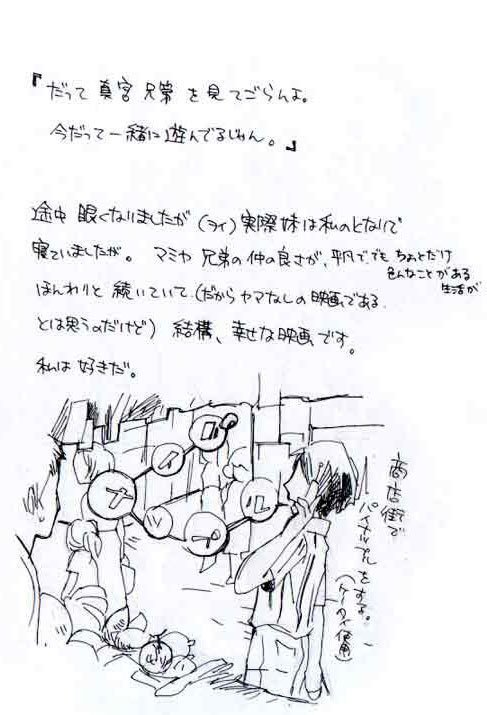 『だって 真宮 兄弟 を 見てごらんよ。
今だって一緒に遊んでるじゃん。』
途中 眠くなりましたが (ライ) 実際 妹は私のとなりで
寝ていましたが。 マミヤ 兄弟の仲の良さが、平凡で、でも ちょっとだけ
色んなことがある
生活が
ほんわりと 続いていて、(だから ヤマなしの映画である
とは思うのだけど) 結構、幸せな映画です。
私は 好きだ。
商店街で
パイナップルをする。
(ケータイ使用)
パ
イ
ナ
ツ
プ
ル